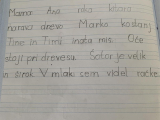 Mama Ana roka letara
narava drevo Marko kostanj
Tine in Timi imata mis. Oče
stoji pri drevesu. Šotor je velik
in širok V mlaki sem videl račke